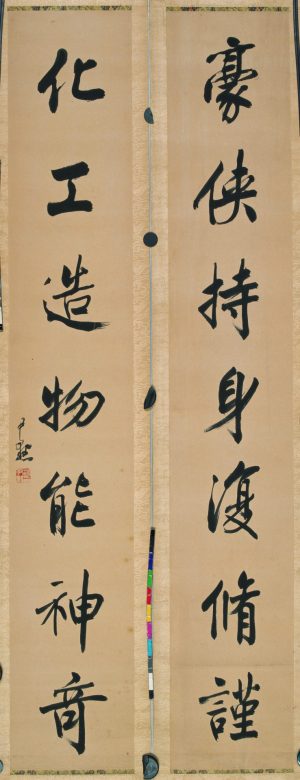 豪侠持身復脩謹
化工造物能神奇
尹默